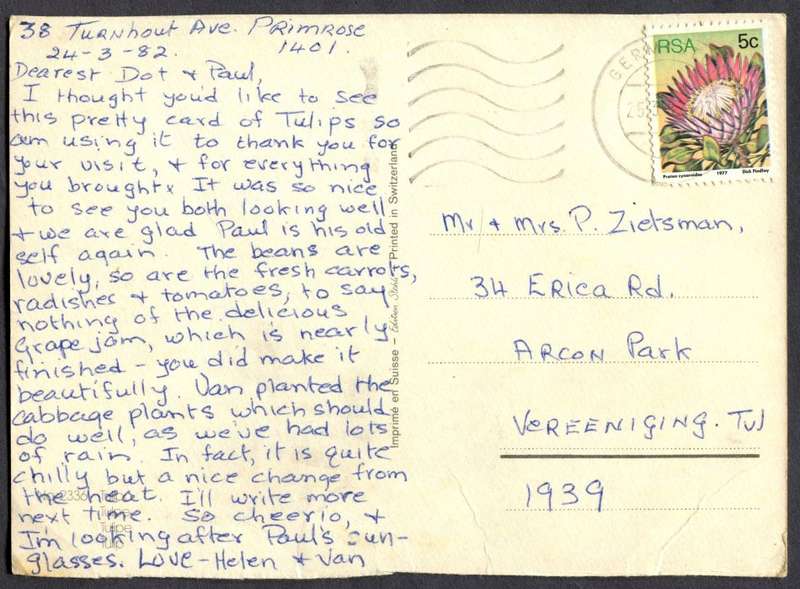 38 Turnhout Ave. Primrose
24-3-82. 1401.
Dearest Dot & Paul,
I thought you'd like to see
this pretty card of Tulips so
am using it to thank you for
your visit, & for everything
you brought. It was so nice
to see you both looking well
& we are glad Paul is his old
self again. The beans are
lovely, so are the fresh carrots,
radishes & tomatoes, to say
nothing of the delicious
Grape jam, which is nearly
finished - you did make it
beautifully. Van planted the
cabbage plants which should
do well, as we've had lots
of rain. In fact, it is quite
chilly but a nice change from
the heat. I'll write more
next time. So cheerio, &
I'm looking after Paul's sun-
glasses. Love - Helen & Van
2336
Tulipe
Imprimé en Suisse - Printed in Switzerland
RSA 5c
Protea cynaroides 1977 Dick Findlay
Mr & Mrs. P. Zietsman,
34 Erica Rd.
Arcon Park
Vereeniging. Tvl
1939